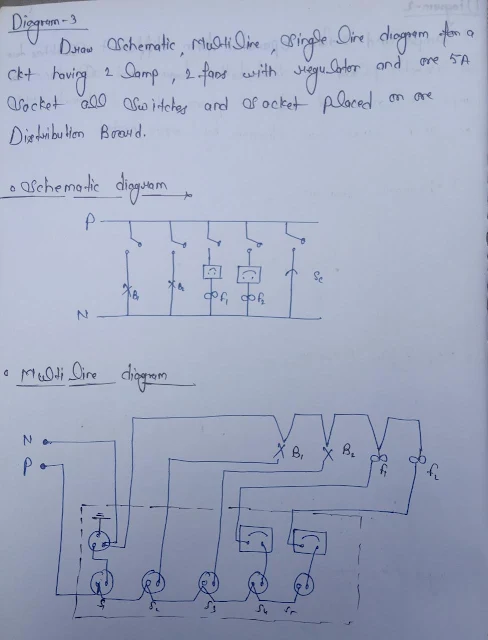 Diagram-3
Draw Schematic, Multi line, Single line diagram for a
ckt having 2 lamp, 2 fans with regulator and one 5A
Socket all Switches and Socket placed on one
Distribution Board.
Schematic diagram
P
B1
B2
f1
f2
Sc
N
Multi line diagram
N
P
B1
B2
f1
f2
S1
S2
S3
S4
S5